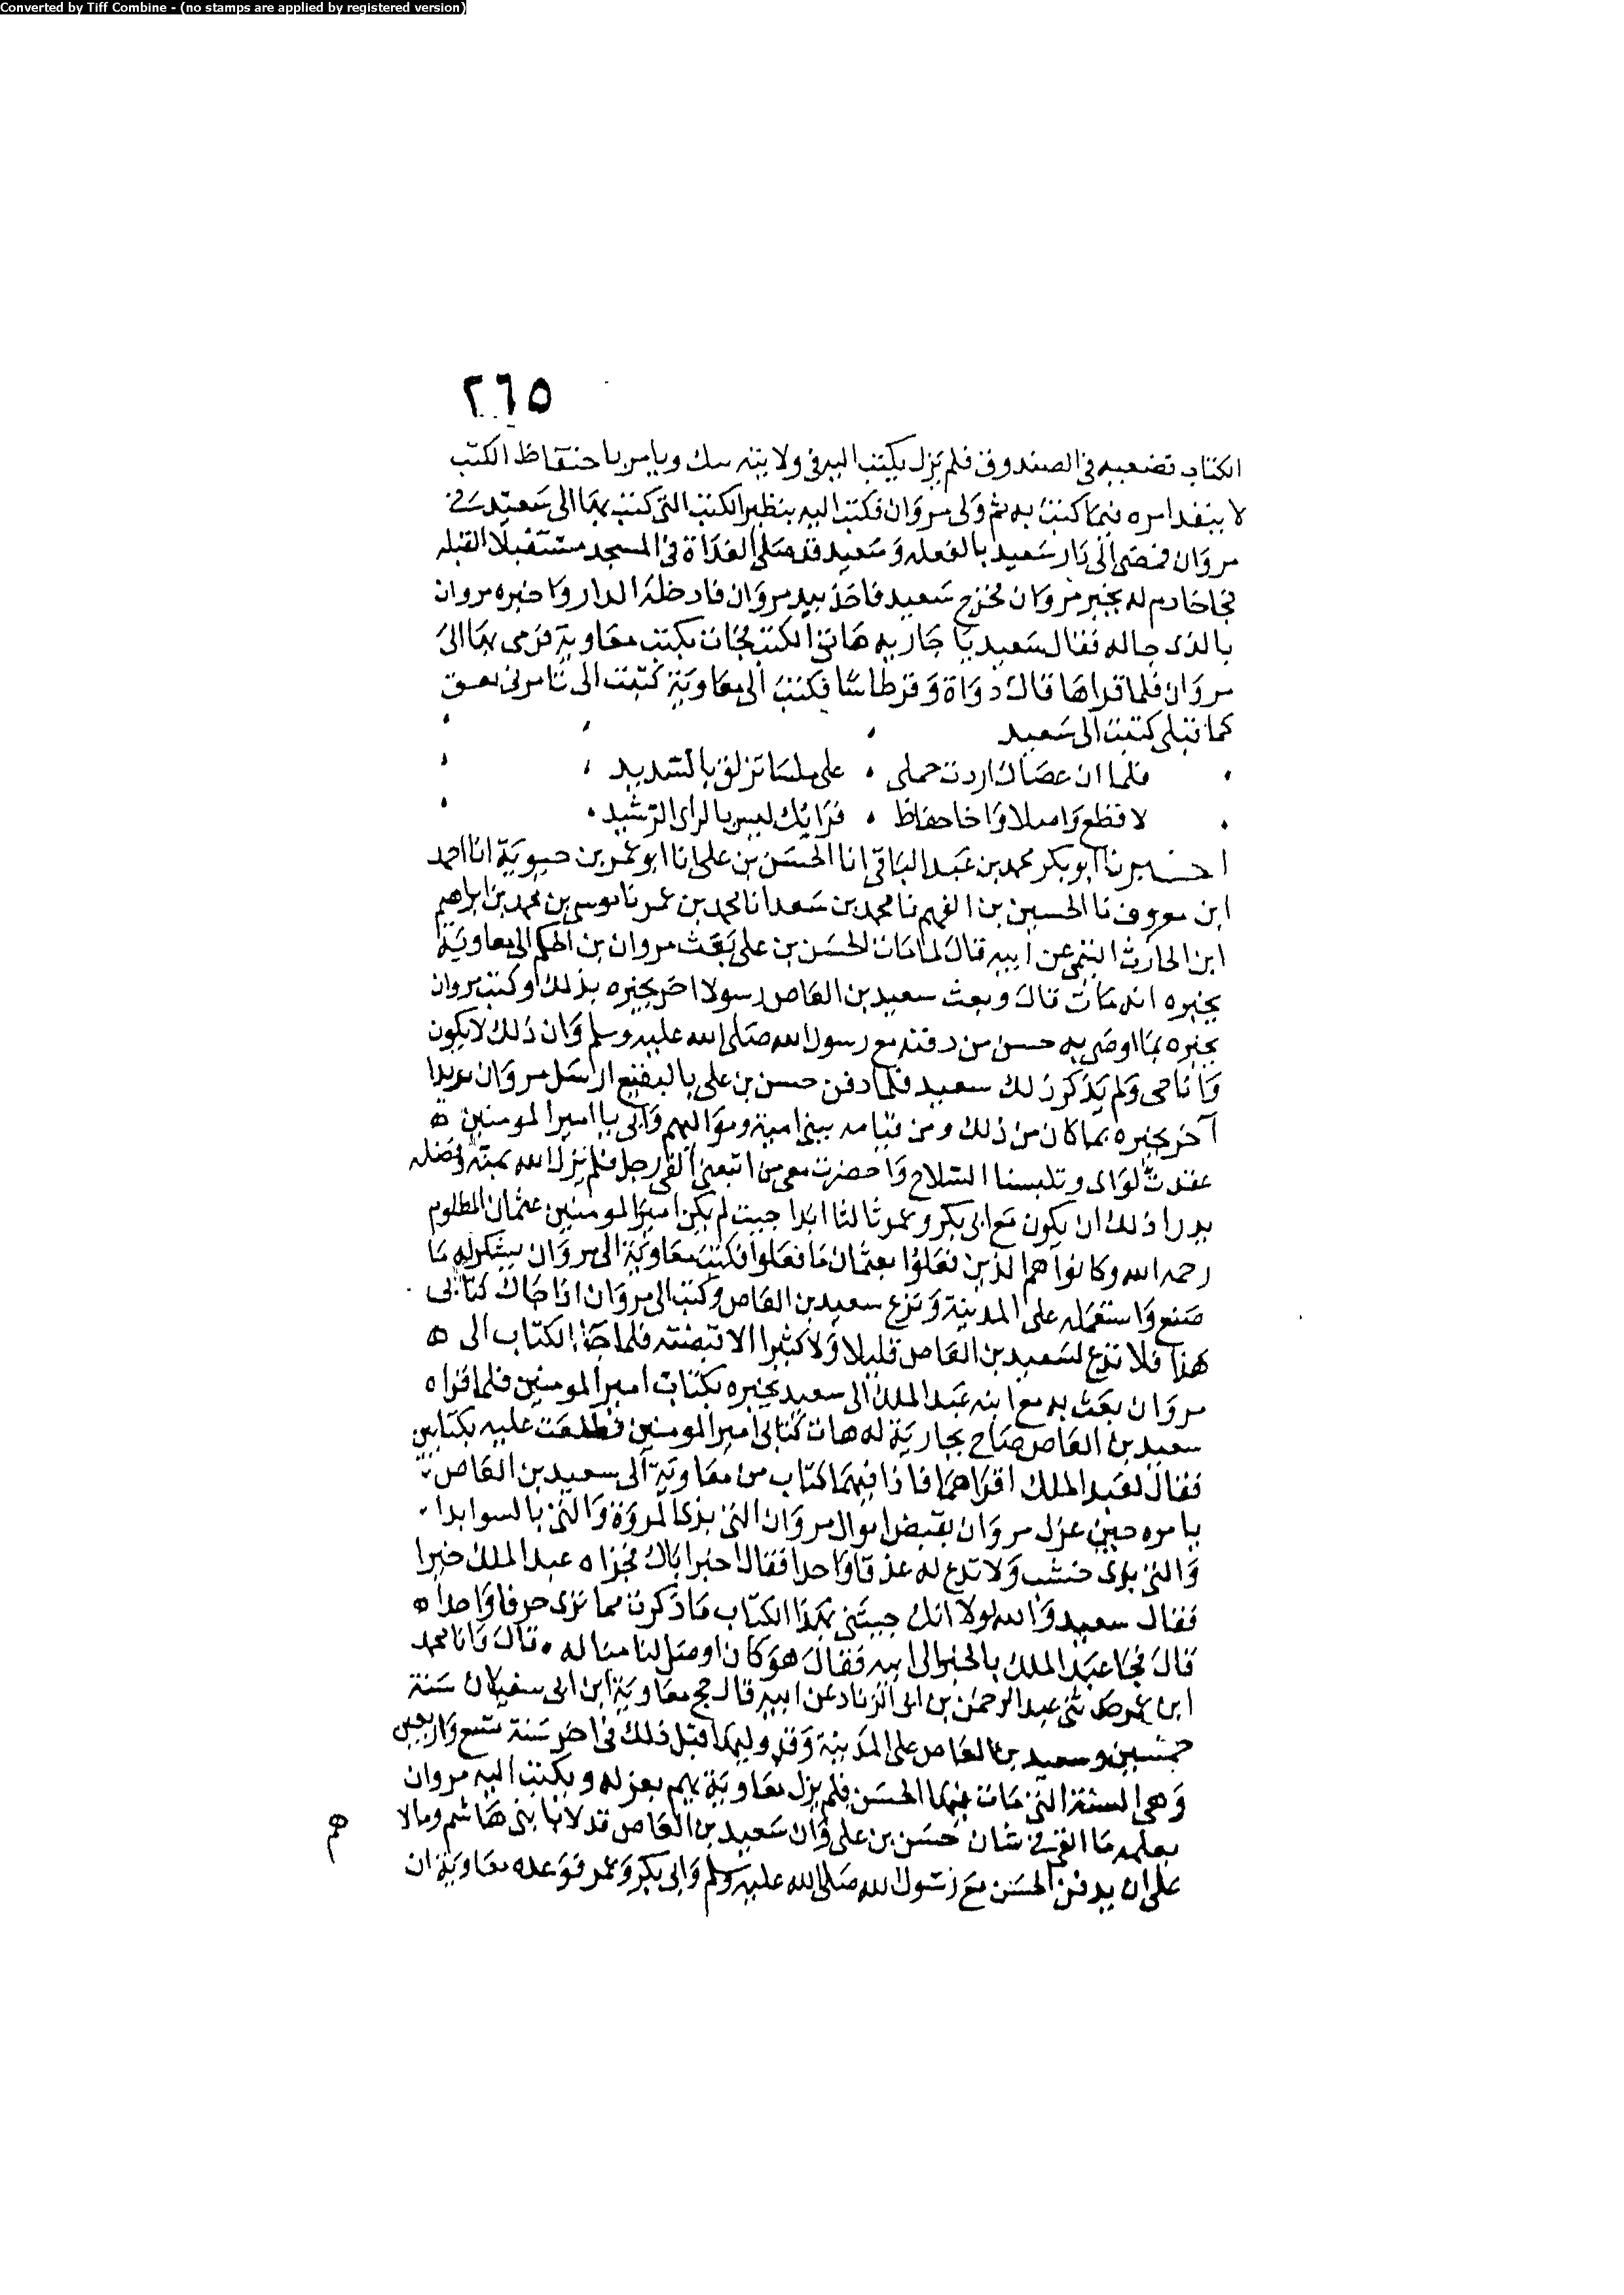 Converted by Tiff Combine - (no stamps are applied by registered version)
٢٦٥
الكتاب تضعيه في الصندوق فلم يزل يكتب اليه في ولا يته ويامر با حتفاظ الكتب
لا ينفد امره فيما كتب به ثم ولى مروان فكتب اليه بنظير الكتب التي كتب بها الى سعيد في
مروان فمضى الى دار سعيد بالفعله وسعيد قد صلى الغداة في المسجد مستقبلا القبله
فجا خادم له يخبر مروان فخرج سعيد فاخذ بيد مروان فادخله الدار واخبره مروان
بالذى جاله فقال سعيد يا جاريه هاتى الكتب فجات بكتب معاوية فرمى بها الى
مروان فلما قراها قال دواة وقرطاسا فكتب الى معاوية كتبت الى تامرنى
كما قبلى كتبت الى سعيد
فلما ان عصاك اردت حملى ، على ملسا تزلق بالشديد
لا قطع واصلا واخا حفاظ ، فرايك ليس بالراى الرشيد
اخبرنا ابو بكر محمد بن عبد الباقى انا الحسن بن على انا ابو عمر بن حيوية انا احمد
ابن معروف نا الحسين بن الفهم نا محمد بن سعد انا محمد بن عمر نا موسى بن محمد بن ابراهيم
ابن الحارث التيمى عن ابيه قال لما مات الحسن بن على بعث مروان بن الحكم الى معاوية
يخبره انه مات قال وبعث سعيد بن العاص رسولا اخر يخبره بذلك وكتب مروان
يخبره بما اوصى به حسن من دفنه مع رسول الله صلى الله عليه وسلم وان ذلك لا يكون
وانا حى ولم يذكر ذلك سعيد فلما دفن حسن بن على بالبقيع ارسل مروان بريدا
آخر يخبره بما كان من ذلك ومن قيامه ببنى امية ومواليهم وانى يا امير المومنين ه
عقدت لواى وتلبسنا السلاح واحضرت معى من اتبعنى الفى رجل فلم يزل الله بمنه وفضله
يدرا ذلك ان يكون مع ابى بكر وعمر ثالثا ابدا حيث لم يكن امير المومنين عثمان المظلوم
رحمه الله وكانوا هم الذين فعلوا بعثمان ما فعلوا فكتب معاوية الى مروان يشكر له ما
صنع واستعمله على المدينة ونزع سعيد بن العاص وكتب الى مروان اذا جاك كتابى
هذا فلا تدع لسعيد بن العاص قليلا ولا كثيرا الا قبضته فلما جا الكتاب الى ه
مروان بعث به مع ابنه عبد الملك الى سعيد يخبره بكتاب امير المومنين فلما قراه
سعيد بن العاص صاح بجارية له هات كتابى امير المومنين فطلعت عليه بكتابين
فقال لعبد الملك اقراهما فاذا فيهما كتاب من معاوية الى سعيد بن العاص
يامره حين عزل مروان بقبض اموال مروان التى بذى المروة والتى بالسوابدا
والتى بذى خشب ولا تدع له عذقا واحدا فقال اخبر اباك فجزاه عبد الملك خيرا
فقال سعيد والله لولا انك جيتنى بهذا الكتاب ما ذكرت مما ترى حرفا واحدا ه
قال فجا عبد الملك بالخبر الى ابيه فقال هو كان اوصل لنا منا له . قال وانا محمد
ابن عمر حدثنى عبد الرحمن بن ابى الزناد عن ابيه قال حج معاوية ابن ابى سفيان سنة
خمسين وسعيد بن العاص على المدينة وقد وليها قبل ذلك فى اخر سنة تسع واربعين
وهى السنة التى مات فيها الحسن فلم يزل معاوية يهم بعزله ويكتب اليه مروان
يعلمه ما فى شان حسن بن على وان سعيد بن العاص قد لانا بنى هاشم ومالا
هم
على ان يدفن الحسن مع رسول الله صلى الله عليه وسلم وابى بكر وعمر فوعده معاوية ان